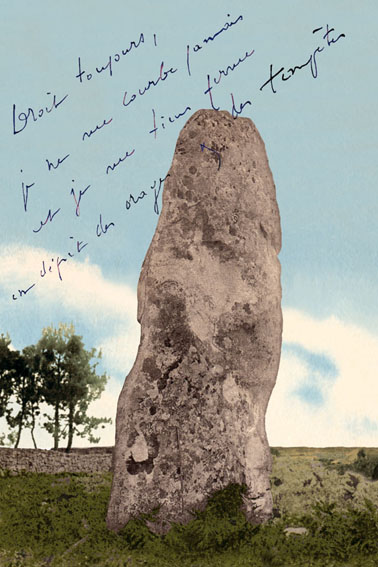 Droit toujours,
je ne me courbe jamais
et je me tiens ferme
en dépit des orages et des tempêtes